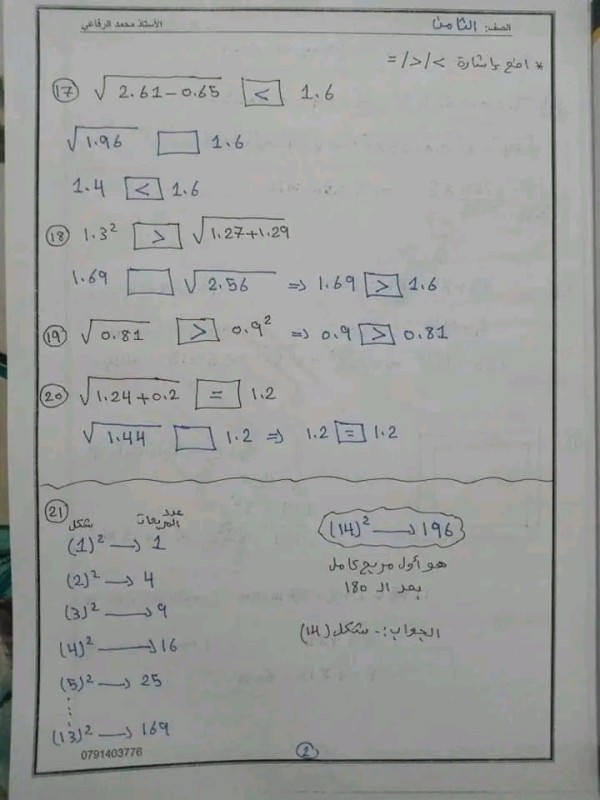 الصف: الثامن الأستاذ محمد الرفاعي
* اضع إشارة > / < / =
17 √2.61 − 0.65 < 1.6
√1.96 □ 1.6
1.4 < 1.6
18 1.3² > √1.27+1.29
1.69 □ √2.56 ⇒ 1.69 > 1.6
19 √0.81 > 0.9² ⇒ 0.9 > 0.81
20 √1.24 + 0.2 = 1.2
√1.44 □ 1.2 ⇒ 1.2 = 1.2
21
شكل عدد المربعات
(1)² → 1
(2)² → 4
(3)² → 9
(4)² → 16
(5)² → 25
⋮
(13)² → 169
(14)² → 196
هو أول مربع كامل
بعد الـ 180
الجواب :- شكل (14)
0791403776
2